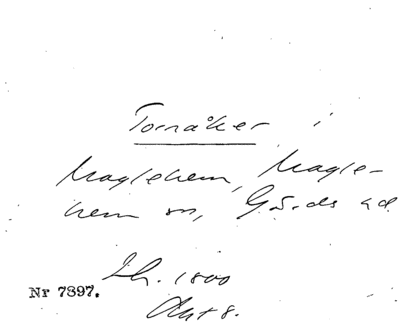 Tornåker i
Maglehem, Magle-
hem sn, Gärds hd
Lh. 1800
Nr 7897.
Akt 8.